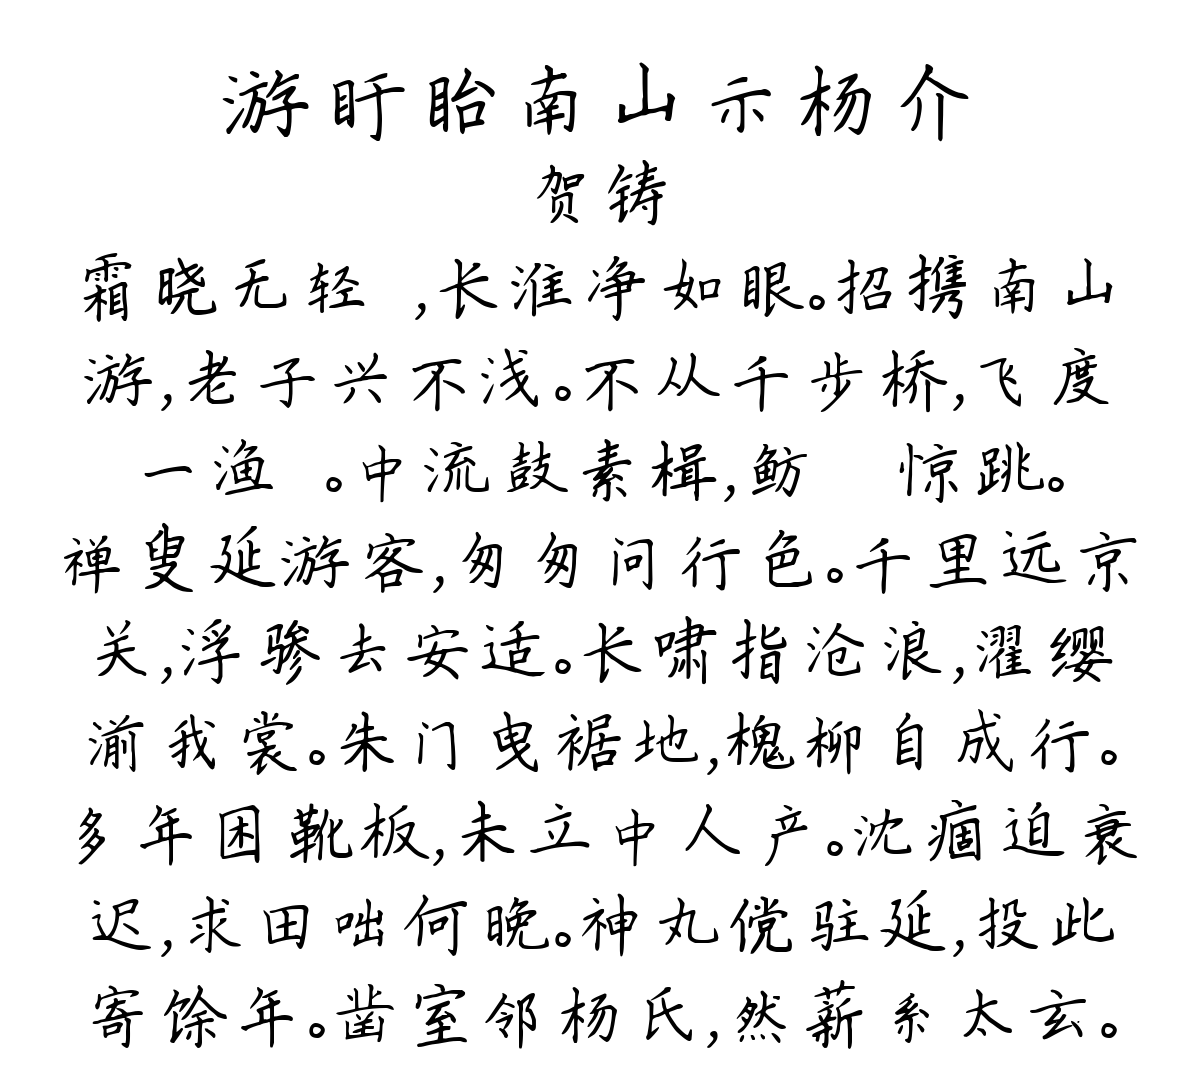 游盱眙南山示杨介
贺铸
霜晓无轻 ,长淮净如眼。招携南山
游,老子兴不浅。不从千步桥,飞度
一渔 。中流鼓素楫,鲂 惊跳。
禅叟延游客,匆匆问行色。千里远京
关,浮骖去安适。长啸指沧浪,濯缨
湔我裳。朱门曳裾地,槐柳自成行。
多年困靴板,未立中人产。沈痼迫衰
迟,求田咄何晚。神丸傥驻延,投此
寄馀年。凿室邻杨氏,然薪系太玄。